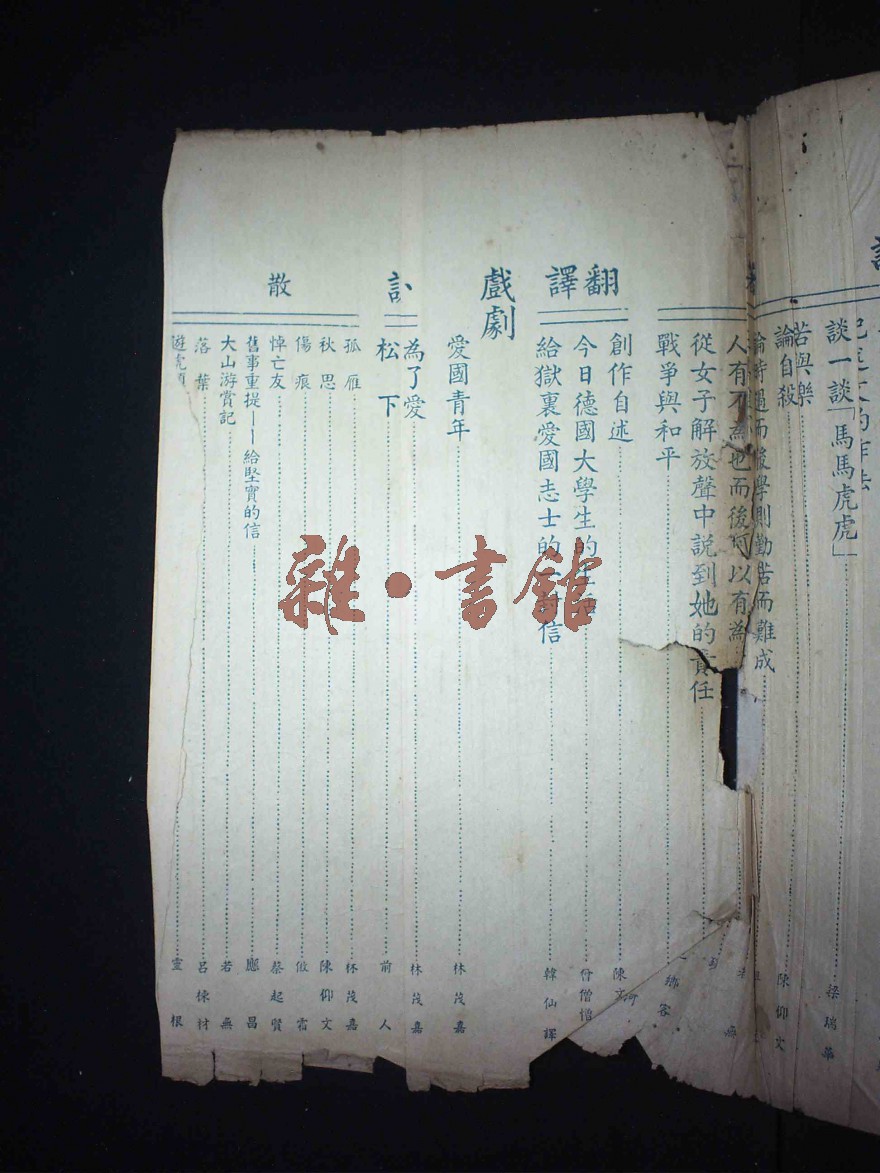 談一談「馬馬虎虎」 梁瑞華
苦與樂
論自殺 陳仰文
論時過而後學則勤苦而難成
人有不為也而後可以有為
從女子解放聲中說到她的責任
戰爭與和平
翻譯
創作自述
今日德國大學生的
給獄裏愛國志士的 信 韓仙譯
戲劇
愛國青年 林茂嘉
為了愛 林茂嘉
松下 前人
散
孤雁 林茂嘉
秋思 陳仰文
傷痕 傲霜
悼亡友 蔡起賢
舊事重提——給堅實的信 應昌
大山游賞記 若無
落葉 呂棟材
遊虎 靈根
雜·書館